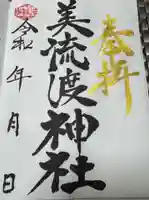 奉拝
美流渡神社
令和 年 月 日